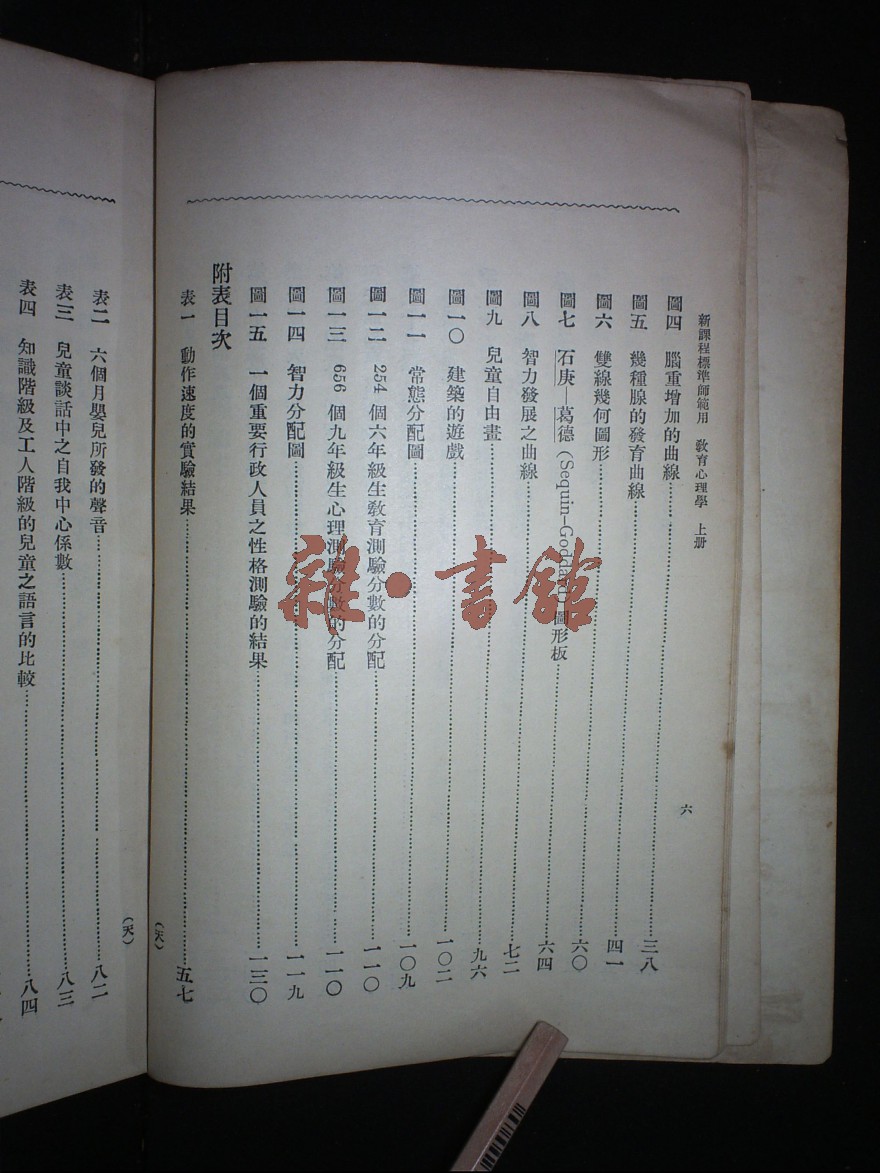 新課程標準師範用 教育心理學 上册
六
圖四 腦重增加的曲線……三八
圖五 幾種腺的發育曲線……四一
圖六 雙線幾何圖形……六〇
圖七 石庚—葛德(Sequin-Goddard)圖形板……六四
圖八 智力發展之曲線……七二
圖九 兒童自由畫……九六
圖一〇 建築的遊戲……一〇二
圖一一 常態分配圖……一〇九
圖一二 254 個六年級生教育測驗分數的分配……一一〇
圖一三 656 個九年級生心理測驗分數的分配……一一〇
圖一四 智力分配圖……一一九
圖一五 一個重要行政人員之性格測驗的結果……一三〇
附表目次
表一 動作速度的實驗結果……五七
(天)
(天)
表二 六個月嬰兒所發的聲音……八二
表三 兒童談話中之自我中心係數……八三
表四 知識階級及工人階級的兒童之語言的比較……八四
雜·書館